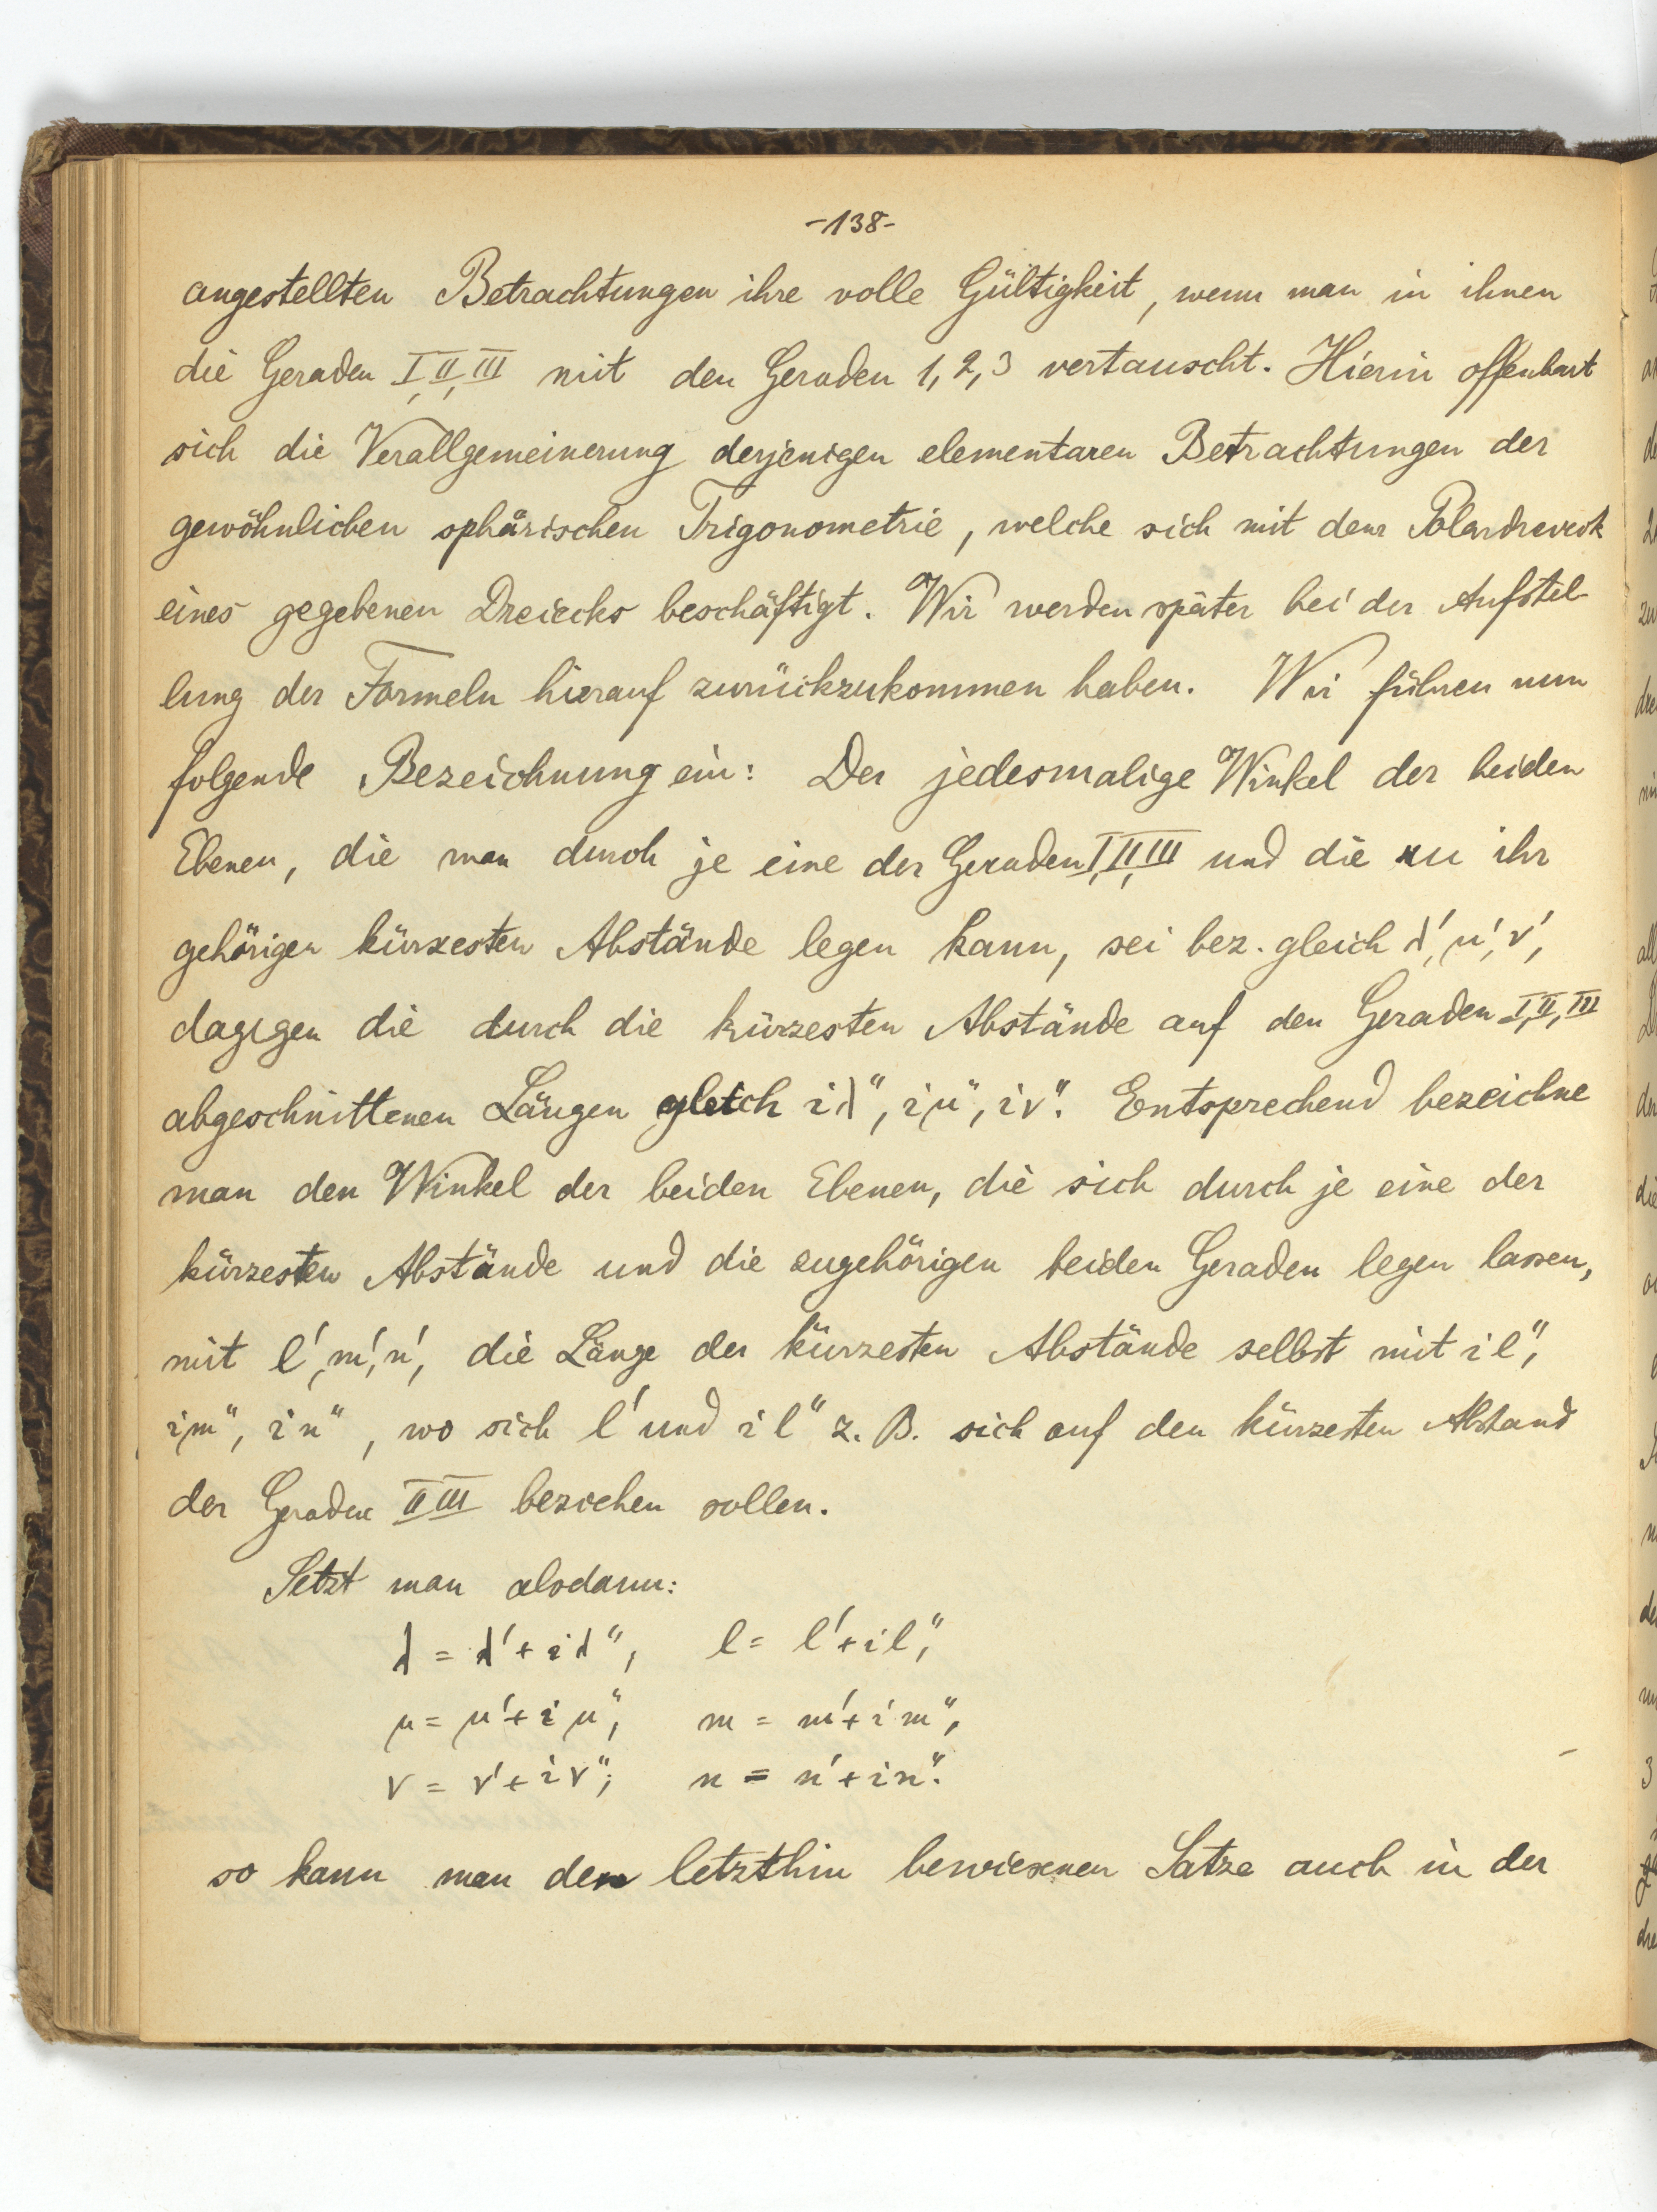 -138-
angestellten Betrachtungen ihre volle Gültigkeit, wenn man in ihnen
die Geraden I, II, III mit den Geraden 1, 2, 3 vertauscht. Hierin offenbart
sich die Verallgemeinerung derjenigen elementaren Betrachtungen der
gewöhnlichen sphärischen Trigonometrie, welche sich mit dem Polardreieck
eines gegebenen Dreiecks beschäftigt. Wir werden später bei der Aufstel-
lung der Formeln hierauf zurückzukommen haben. Wir führen nun
folgende Bezeichnung ein: Der jedesmalige Winkel der beiden
Ebenen, die man durch je eine der Geraden I, II, III und die zu ihr
gehörigen kürzesten Abstände legen kann, sei bez. gleich λ', μ', ν',
dagegen die durch die kürzesten Abstände auf den Geraden I, II, III
abgeschnittenen Längen gleich iλ", iμ", iν". Entsprechend bezeichne
man den Winkel der beiden Ebenen, die sich durch je eine der
kürzesten Abstände und die zugehörigen beiden Geraden legen lassen,
mit l', m', n', die Länge der kürzesten Abstände selbst mit il",
im", in", wo sich l' und il" z. B. sich auf den kürzesten Abstand
der Geraden II III beziehen sollen.
Setzt man alsdann:
λ = λ' + iλ", l = l' + il",
μ = μ' + iμ", m = m' + im",
ν = ν' + iν"; n = n' + in".
so kann man den letzthin bewiesenen Satze auch in der